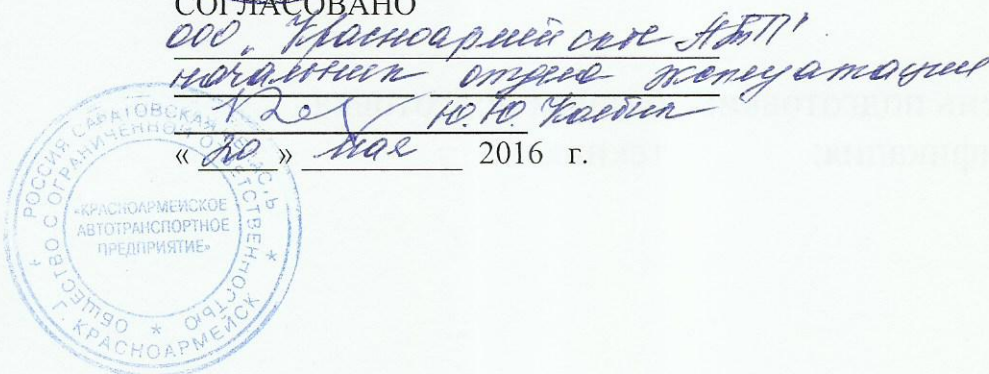 СОГЛАСОВАНО
ООО "Красноармейское АТП"
начальник отдела эксплуатации
Ю.Ю.
« 20 » мая 2016 г.
РОССИЯ САРАТОВСКАЯ ОБЛАСТЬ
ОБЩЕСТВО С ОГРАНИЧЕННОЙ ОТВЕТСТВЕННОСТЬЮ
«КРАСНОАРМЕЙСКОЕ
АВТОТРАНСПОРТНОЕ
ПРЕДПРИЯТИЕ»
Г. КРАСНОАРМЕЙСК